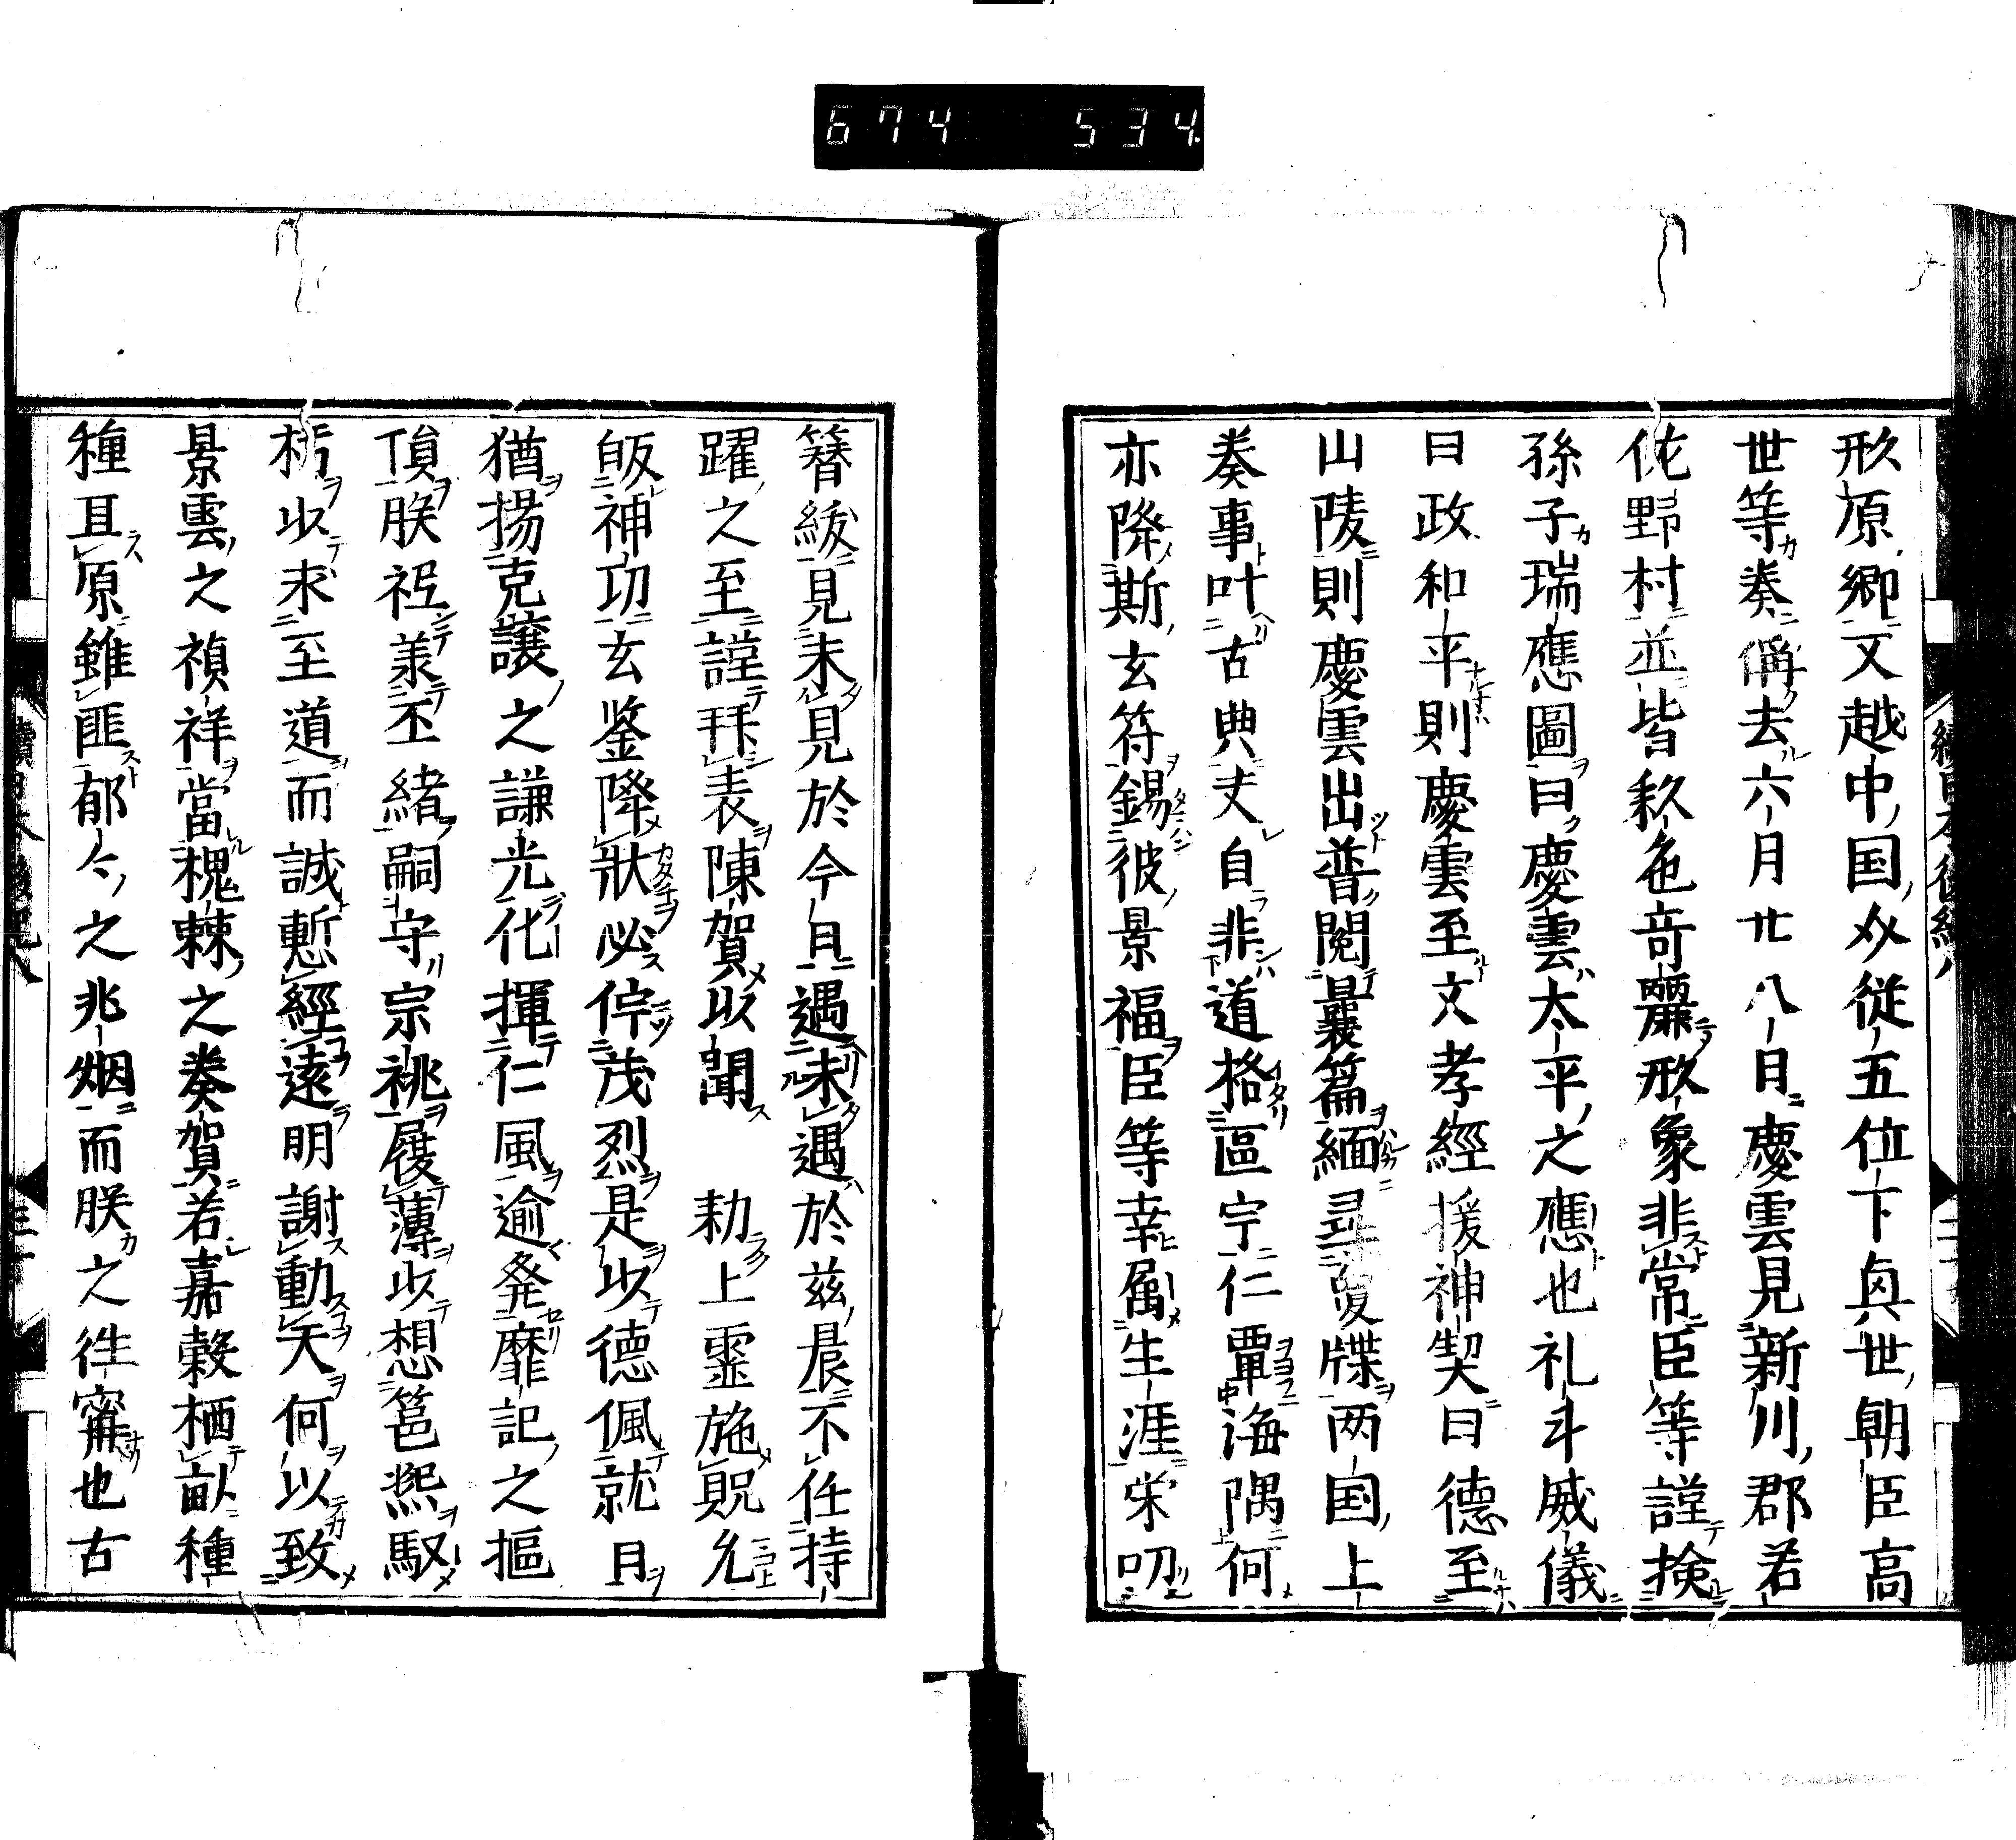 674 534
形原郷又越中国介従五位下興世朝臣高
世等奏偁去六月廿八日慶雲見新川郡若
佐野村並皆秡色奇麗形象非常臣等謹検
孫子瑞應圖曰慶雲太平之應也礼斗威儀
曰政和平則慶雲至文孝經援神契曰德至
山陵則慶雲出普閱曩篇緬尋夐牒两国上
奏事叶古典夫自非道格區宇仁覃海隅何
亦降斯玄符錫彼景福臣等幸属生涯栄叨
簪紱見未見於今日遇未遇於茲晨不任抃
躍之至謹拜表陳賀以聞 勅上霊施貺允
皈神功玄鉴降狀必侔茂烈是以德佩就日
猶揚克譲之謙光化揮仁風逾発靡記之摳
頂朕祗羕丕緒嗣守宗祧履薄以想笣煕馭
朽以求至道而誠慙經遠明謝動天何以致
景雲之禎祥當槐棘之奏賀若嘉穀栖畝種
種且原雖匪郁々之兆烟而朕之徃寗也古